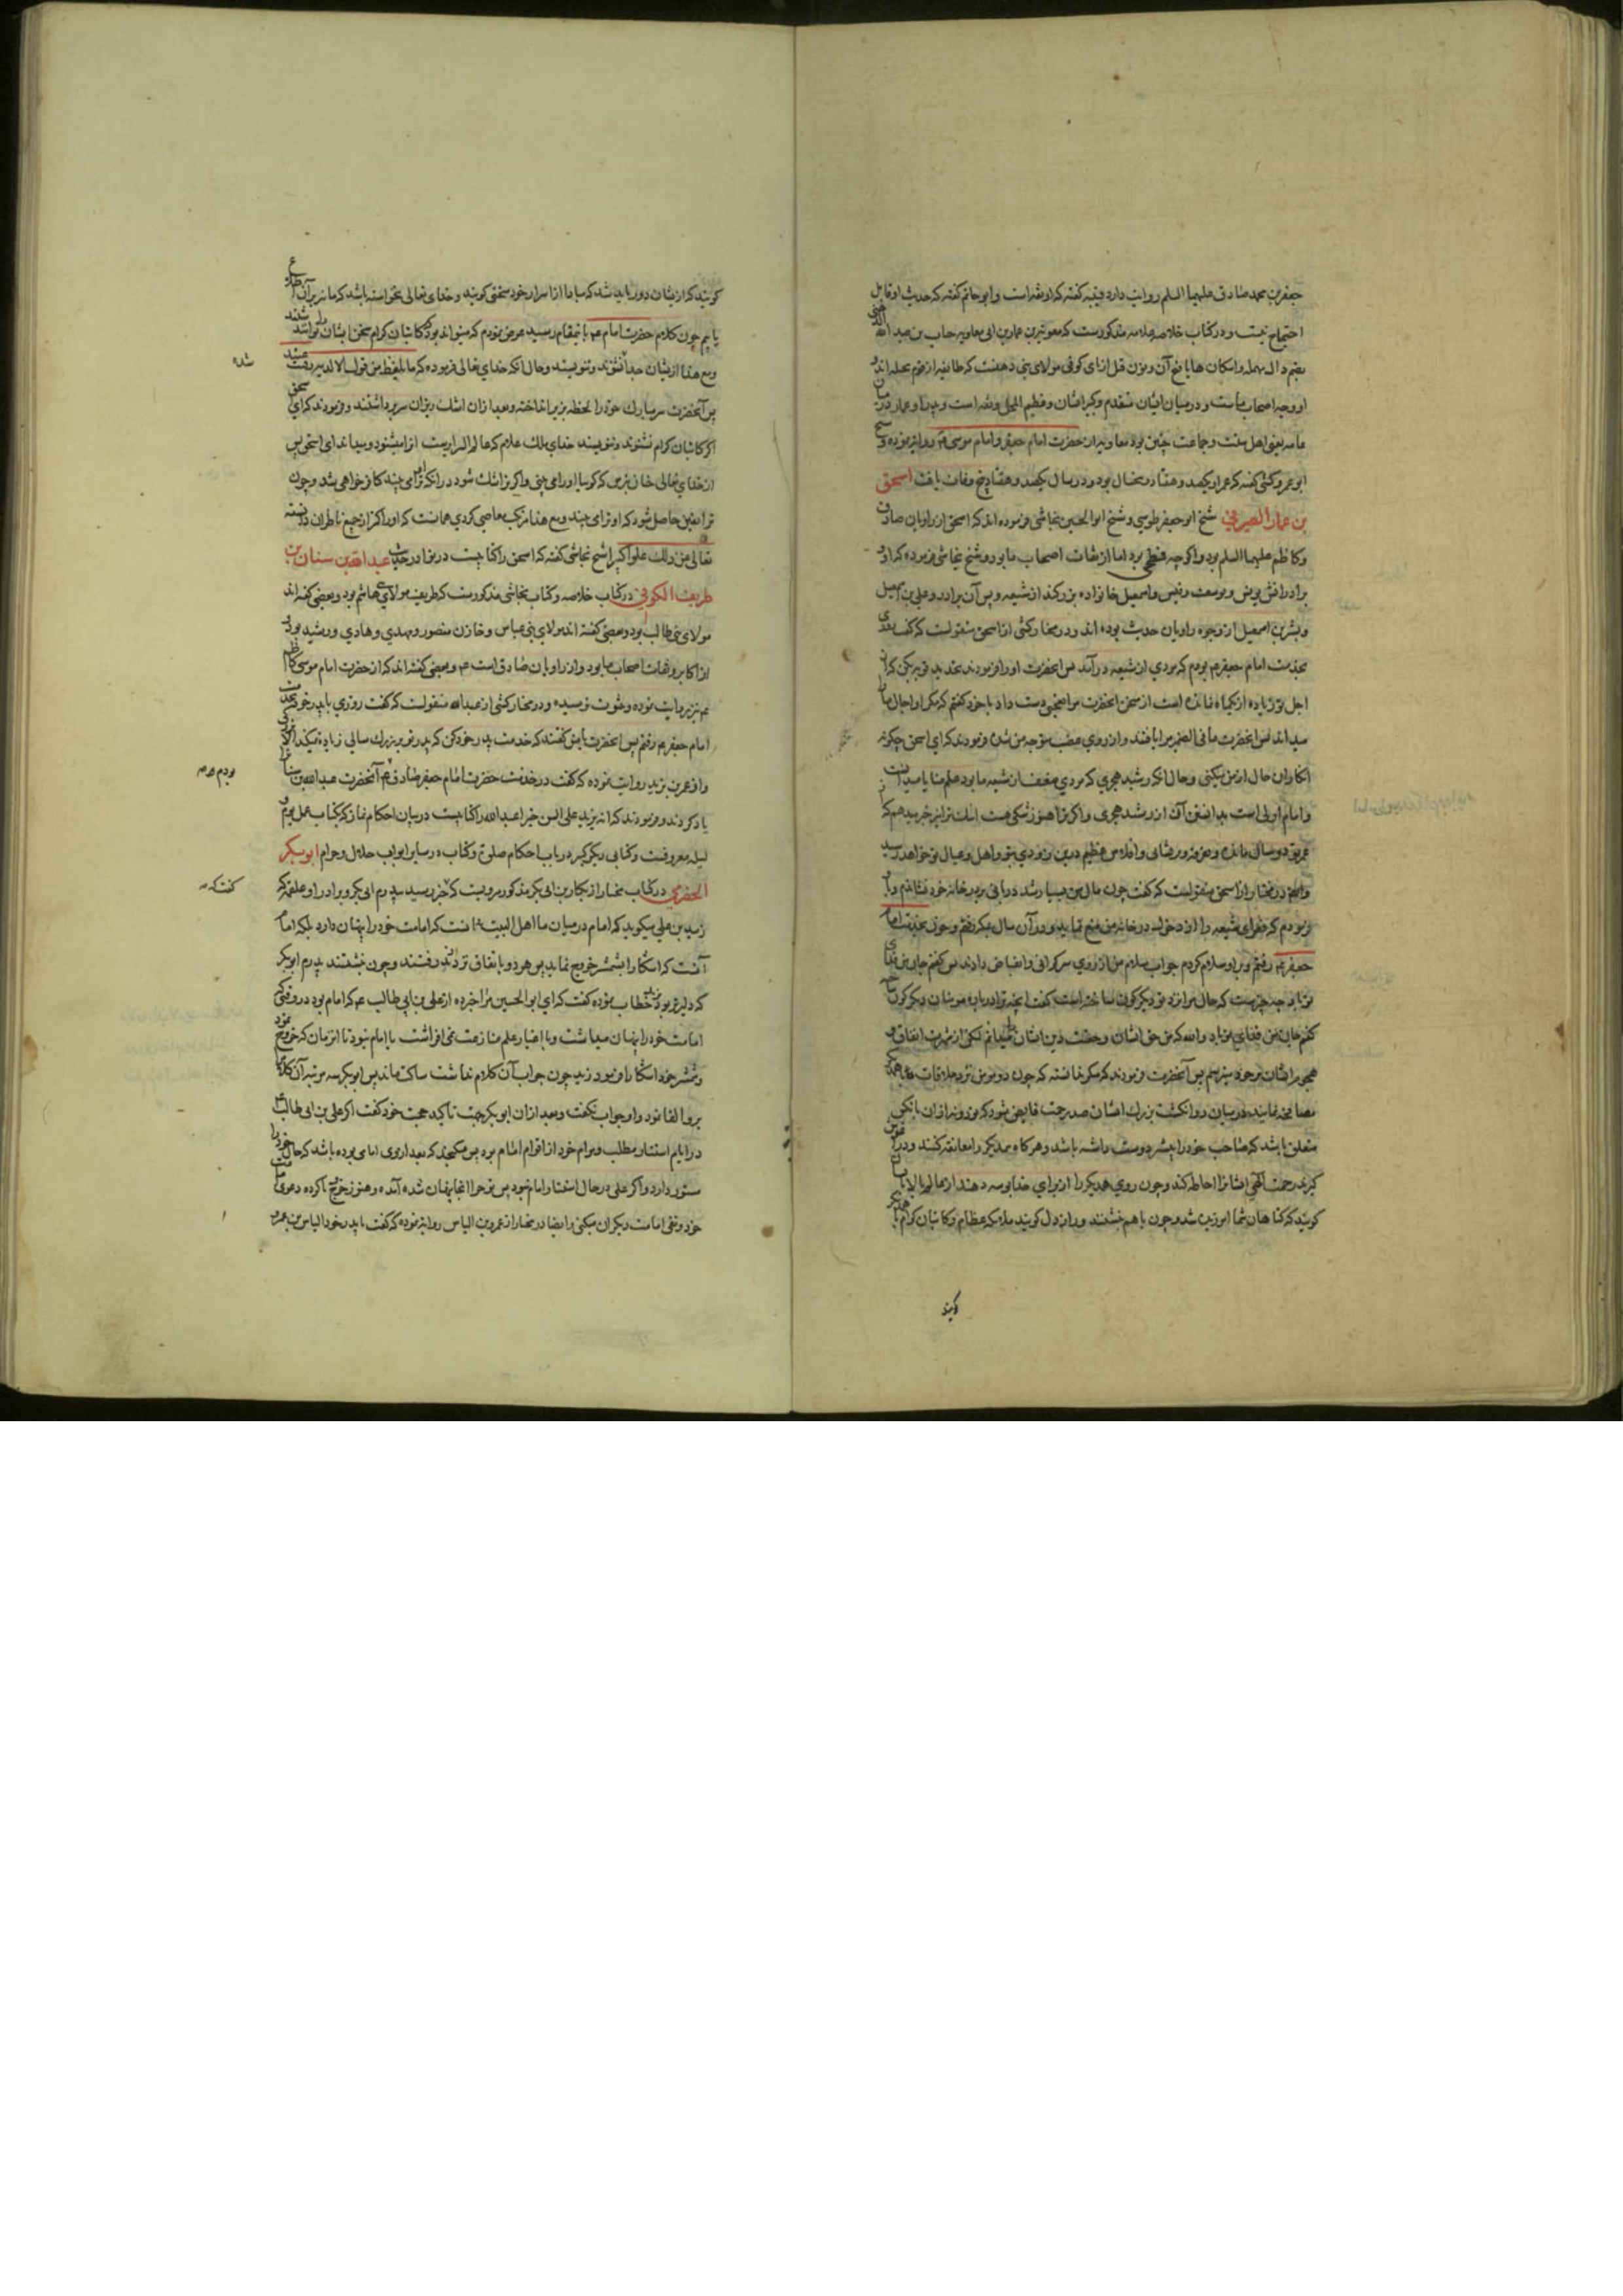 جعفر بن محمد صادق علیهما السلم روایت دارد قتیبه گفته که او ثقه است و ابو حاتم گفته که حدیث او قابل
احتجاج نیست و در کتاب خلاصه علامه مذکورست که معویة بن عمار بن ابی معاویه جناب بن عبد الله
بضم دال مهمله و اسکان ها یا فتح آن و نون قبل از یای کوفی مولای بنی دهنست که طایفه از قوم بجیله اند و
او وجه اصحاب ماست و در میان ایشان متقدم و کبیر الشان و عظیم المحل و ثقه است و پدر او عمار در میان
عامه یعنی اهل سنت و جماعت چنین بود معاویه از حضرت امام جعفر و امام موسی ع روایة نموده و شیخ
ابو عمرو کشی گفته که عمر او یکصد و هفتاد و پنجسال بود و در سال یکصد و هفتاد و پنج وفات یافت اسحق
بن عمار الصیرفی شیخ ابو جعفر طوسی و شیخ ابو الحسین نجاشی فرموده اند که اسحق از راویان صادق
و کاظم علیهما السلم بود و اگرچه فطحی بود اما از ثقات اصحاب ما بود و شیخ نجاشی فرموده که او و
برادرانش یونس و یوسف و قیس و اسمعیل خانواده بزرگند از شیعه و پسران برادر او علی بن اسمعیل
و بشر بن اسمعیل از وجوه راویان حدیث بوده اند و در مختار کشی از اسحق منقولست که گفت روزی
بخدمت امام جعفر ع بودم که مردی از شیعه در آمد پس آنحضرت او را فرمودند تجدید توبه بکن که از
اجل تو زیاده از یکماه نمانده است از سخن آنحضرت مرا عجبی دست داد با خود گفتم که مگر او اجال ما را
میداند پس آنحضرت ما فی الضمیر مرا یافتند و از روی غضب متوجه من شده فرمودند که ای اسحق چگونه
انکار این حال از من میکنی و حال آنکه رشید هجری که مردی مستضعف از شیعه ما بود علم منایا میدانست
و امام اولی است بدانستن آن از رشید هجری و اگر ترا هنوز شکی هست اینک ترا نیز خبر میدهم که از
عمر تو دو سال مانده و تفرقه و پریشانی و افلاس عظیم درین زودی بتو و اهل و عیال تو خواهد رسید
و ایضا در مختار از اسحق منقولست که گفت چون مال من بسیار شد دربانی بر در خانه خود نشاندم و او را
فرمودم که فقرای شیعه را از دخول در خانه من منع نماید و در آن سال بمکه رفتم و چون بخدمت امام
جعفر ع رفتم و بر او سلام کردم جواب سلام من از روی سرگرانی و انقباض دادند پس گفتم جان من فدای
تو باد چه چیزست که حال مرا نزد تو دیگرگون ساخته است گفت آنچه ترا در باره مومنان دیگرگون ساخته
گفتم جان من فدای تو باد والله که من حق ایشان و حقیت دین ایشان را میدانم لیکن از شهرت انفاق و
هجوم ایشان بر خود میترسم پس آنحضرت فرمودند که مگر ندانسته که چون دو مومن نزد ملاقات با همدیگر
مصافحه نمایند در میان دو انگشت بزرگ ایشان صد رحمت فایض شود که نود و نه از آن بآنکس
متعلق باشد که صاحب خود را بیشتر دوست داشته باشد و هرگاه همدیگر را معانقه کنند و در آغوش
گیرند رحمت الهی ایشانرا احاطه کند و چون روی همدیگر را از برای خدا بوسه دهند از عالم بالا بایشان
گویند که گناهان شما آمرزیده شد و چون با هم بنشینند و راز دل گویند ملائکه عظام و کاتبان کرام با همدیگر
گویند
گویند که از ایشان دور باید شد که مبادا از اسرار خود سخنی گویند و خدای تعالی نخواسته باشد که ما نیز بر آن اطلاع
یابیم چون کلام حضرت امام ع باینمقام رسید عرض نمودم که میتواند بود که کاتبان کرام سخن ایشان را نشنوند
و مع هذا از ایشان جدا نشوند و ننویسند و حال آنکه خدای تعالی فرموده که ما یلفظ من قول الا لدیه رقیب عتید
پس آنحضرت سر مبارک خود را لحظه بزیر انداخته و بعد از آن اشک ریزان سر برداشتند و فرمودند که ای اسحق
اگر کاتبان کرام نشنوند و ننویسند خدای ملک علام که عالم السرایرست از ایشان میشنود و میداند ای اسحق پس
از خدای تعالی خائف شو که گویا او را می بینی و اگر ترا شک شود در آنکه او ترا می بیند کافر خواهی شد و چون
ترا یقین حاصل شود که او ترا می بیند و مع هذا مرتکب معاصی کردی همانست که او را کمتر از جمیع ناظران دانسته
تعالی عن ذلک علوا کبیرا شیخ نجاشی گفته که اسحق را کتابیست در نوادر حدیث عبد الله بن سنان بن
طریف الکوفی در کتاب خلاصه و کتاب نجاشی مذکورست که طریف مولای بنی هاشم بود و بعضی گفته اند
مولای بنی طالب بود و بعضی گفته اند مولای بنی عباس و خازن منصور و مهدی و هادی و رشید بود و
از اکابر و ثقات اصحاب ما بود و از راویان صادق است ع و بعضی گفته اند که از حضرت امام موسی کاظم
ع نیز روایت نموده و بثبوت نرسیده و در مختار کشی از عبد الله منقولست که گفت روزی با پدر خود بخدمت
امام جعفر ع رفتم پس آنحضرت بمن گفتند که خدمت پدر خود کن که پدر تو بر بزرگ سالی زیاده میکند الا خیرا
و از عمر بن یزید روایت نموده که گفت در خدمت حضرت امام جعفر صادق ع آنحضرت عبد الله بن سنان را
بودم صح
یاد کردند و فرمودند که انه یزید علی السن خیرا عبد الله را کتابیست در بیان احکام نماز که بکتاب عمل یوم و
لیله معروفست و کتابی دیگر کبیر در باب احکام صلوة و کتاب در سایر ابواب حلال و حرام ابو بکر
الحضرمی در کتاب مختار از بکار بن ابی بکر مذکور مرویست که خبر رسید بپدرم ابی بکر و برادر او علقمه که
گفت که
زید بن علی میگوید که امام در میان ما اهل البیت نه آنست که امامت خود را پنهان دارد بلکه امام
آنست که آشکارا بشمشیر خروج نماید پس هر دو باتفاق نزد زید رفتند و چون نشستند پدرم ابو بکر
که دلیرتر بود بزید خطاب نموده گفت که ای ابو الحسین مرا خبر ده از علی بن ابی طالب ع که امام بود در وقتی که
امامت خود را پنهان میداشت و باظهار علم منازعت نمی افراشت یا امام نبود تا آنزمان که خروج نمود
و شمشیر خود آشکارا فرمود زید چون جواب آن کلام نداشت ساکت ماند پس ابو بکر سه مرتبه آن کلام را
برو القا نمود و او جواب نگفت و بعد از آن ابو بکر جهت تاکید حجت خود گفت اگر علی بن ابی طالب ع
در ایام استتار مطلب و مرام خود از اقوام امام بود پس میگنجد که بعد از وی امامی بوده باشد که حال خود را
مستور دارد و اگر علی در حال استتار امام نبود پس تو چرا اینجا پنهان شده آمده و هنوز خروج ناکرده دعوی امامت
خود و نفی امامت دیگران میکنی و ایضا در مختار از عمرو بن الیاس روایة نموده که گفت با پدر خود الیاس بن عمرو